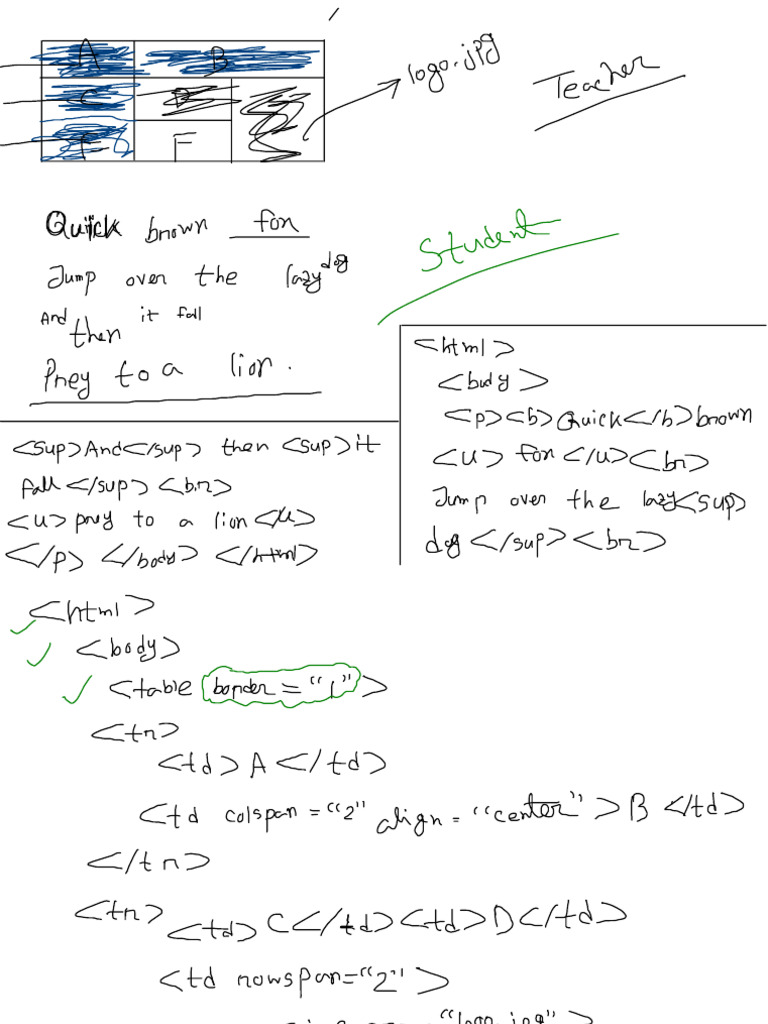 A B
logo.jpg
Teacher
C D
E F
Quick brown fox
Student
Jump over the lazy dog
And then it fall
Prey to a lion.
<html>
<body>
<p><b>Quick</b>brown
<u> fox </u><br>
Jump over the lazy<sup>
dog</sup><br>
<sup>And</sup> then <sup>it
fall</sup><br>
<u>prey to a lion</u>
</p> </body> </html>
<html>
<body>
<table border="1">
<tr>
<td>A</td>
<td colspan="2" align="center">B</td>
</tr>
<tr> <td>C</td><td>D</td>
<td rowspan="2">
"logo.jpg">